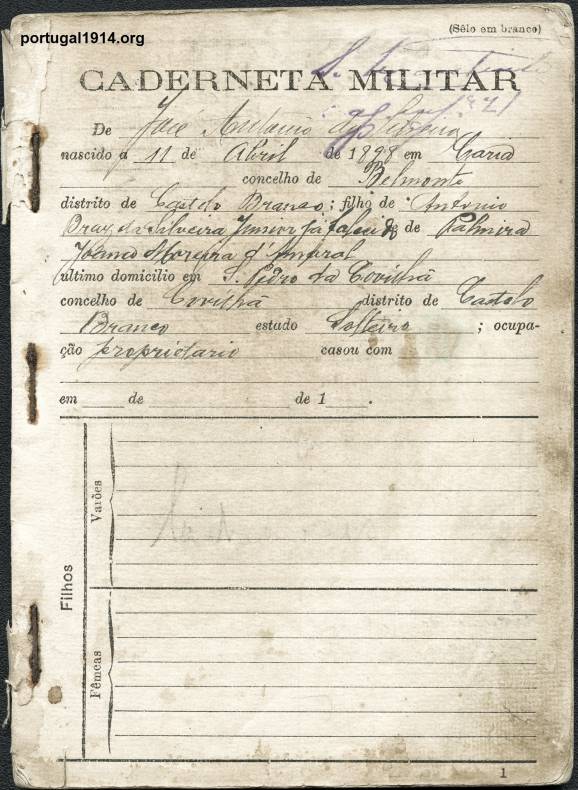 portugal1914.org
(Sêlo em branco)
CADERNETA MILITAR
De José Antonio da Silveira
nascido a 11 de Abril de 1898 em Caria
concelho de Belmonte
distrito de Castelo Branco; filho de Antonio
Braz da Silveira Junior já falecido e de Palmira
Moreira d'Amaral
último domicílio em S. Pedro da Covilhã
concelho de Covilhã distrito de Castelo
Branco estado Solteiro; ocupa-
ção proprietario casou com
em de de 1 .
Filhos
Varões
Fêmeas
1